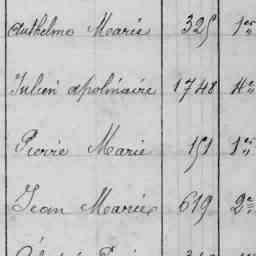 Anthelme Marie 325 1er
Julien apolinaire 1748 4e
Pierre Marie 151 1er
Jean Marie 619 2e